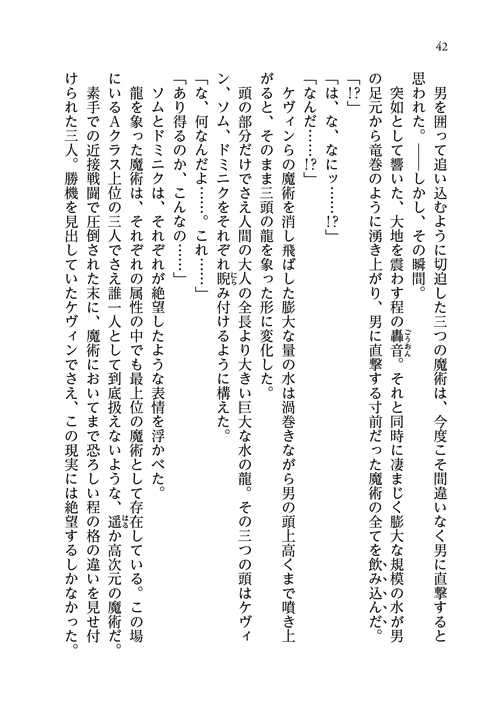 42
　男を囲って追い込むように切迫した三つの魔術は、今度こそ間違いなく男に直撃すると
思われた。――しかし、その瞬間。
　突如として響いた、大地を震わす程の轟音。それと同時に凄まじく膨大な規模の水が男
の足元から竜巻のように湧き上がり、男に直撃する寸前だった魔術の全てを飲み込んだ。
「!?」
「は、な、なにッ……!?」
「なんだ……!?」
　ケヴィンらの魔術を消し飛ばした膨大な量の水は渦巻きながら男の頭上高くまで噴き上
がると、そのまま三頭の龍を象った形に変化した。
　頭の部分だけでさえ人間の大人の全長より大きい巨大な水の龍。その三つの頭はケヴィ
ン、ソム、ドミニクをそれぞれ睨み付けるように構えた。
「な、何なんだよ……。これ……」
「あり得るのか、こんなの……」
　ソムとドミニクは、それぞれが絶望したような表情を浮かべた。
　龍を象った魔術は、それぞれの属性の中でも最上位の魔術として存在している。この場
にいるAクラス上位の三人でさえ誰一人として到底扱えないような、遥か高次元の魔術だ。
　素手での近接戦闘で圧倒された末に、魔術においてまで恐ろしい程の格の違いを見せ付
けられた三人。勝機を見出していたケヴィンでさえ、この現実には絶望するしかなかった。